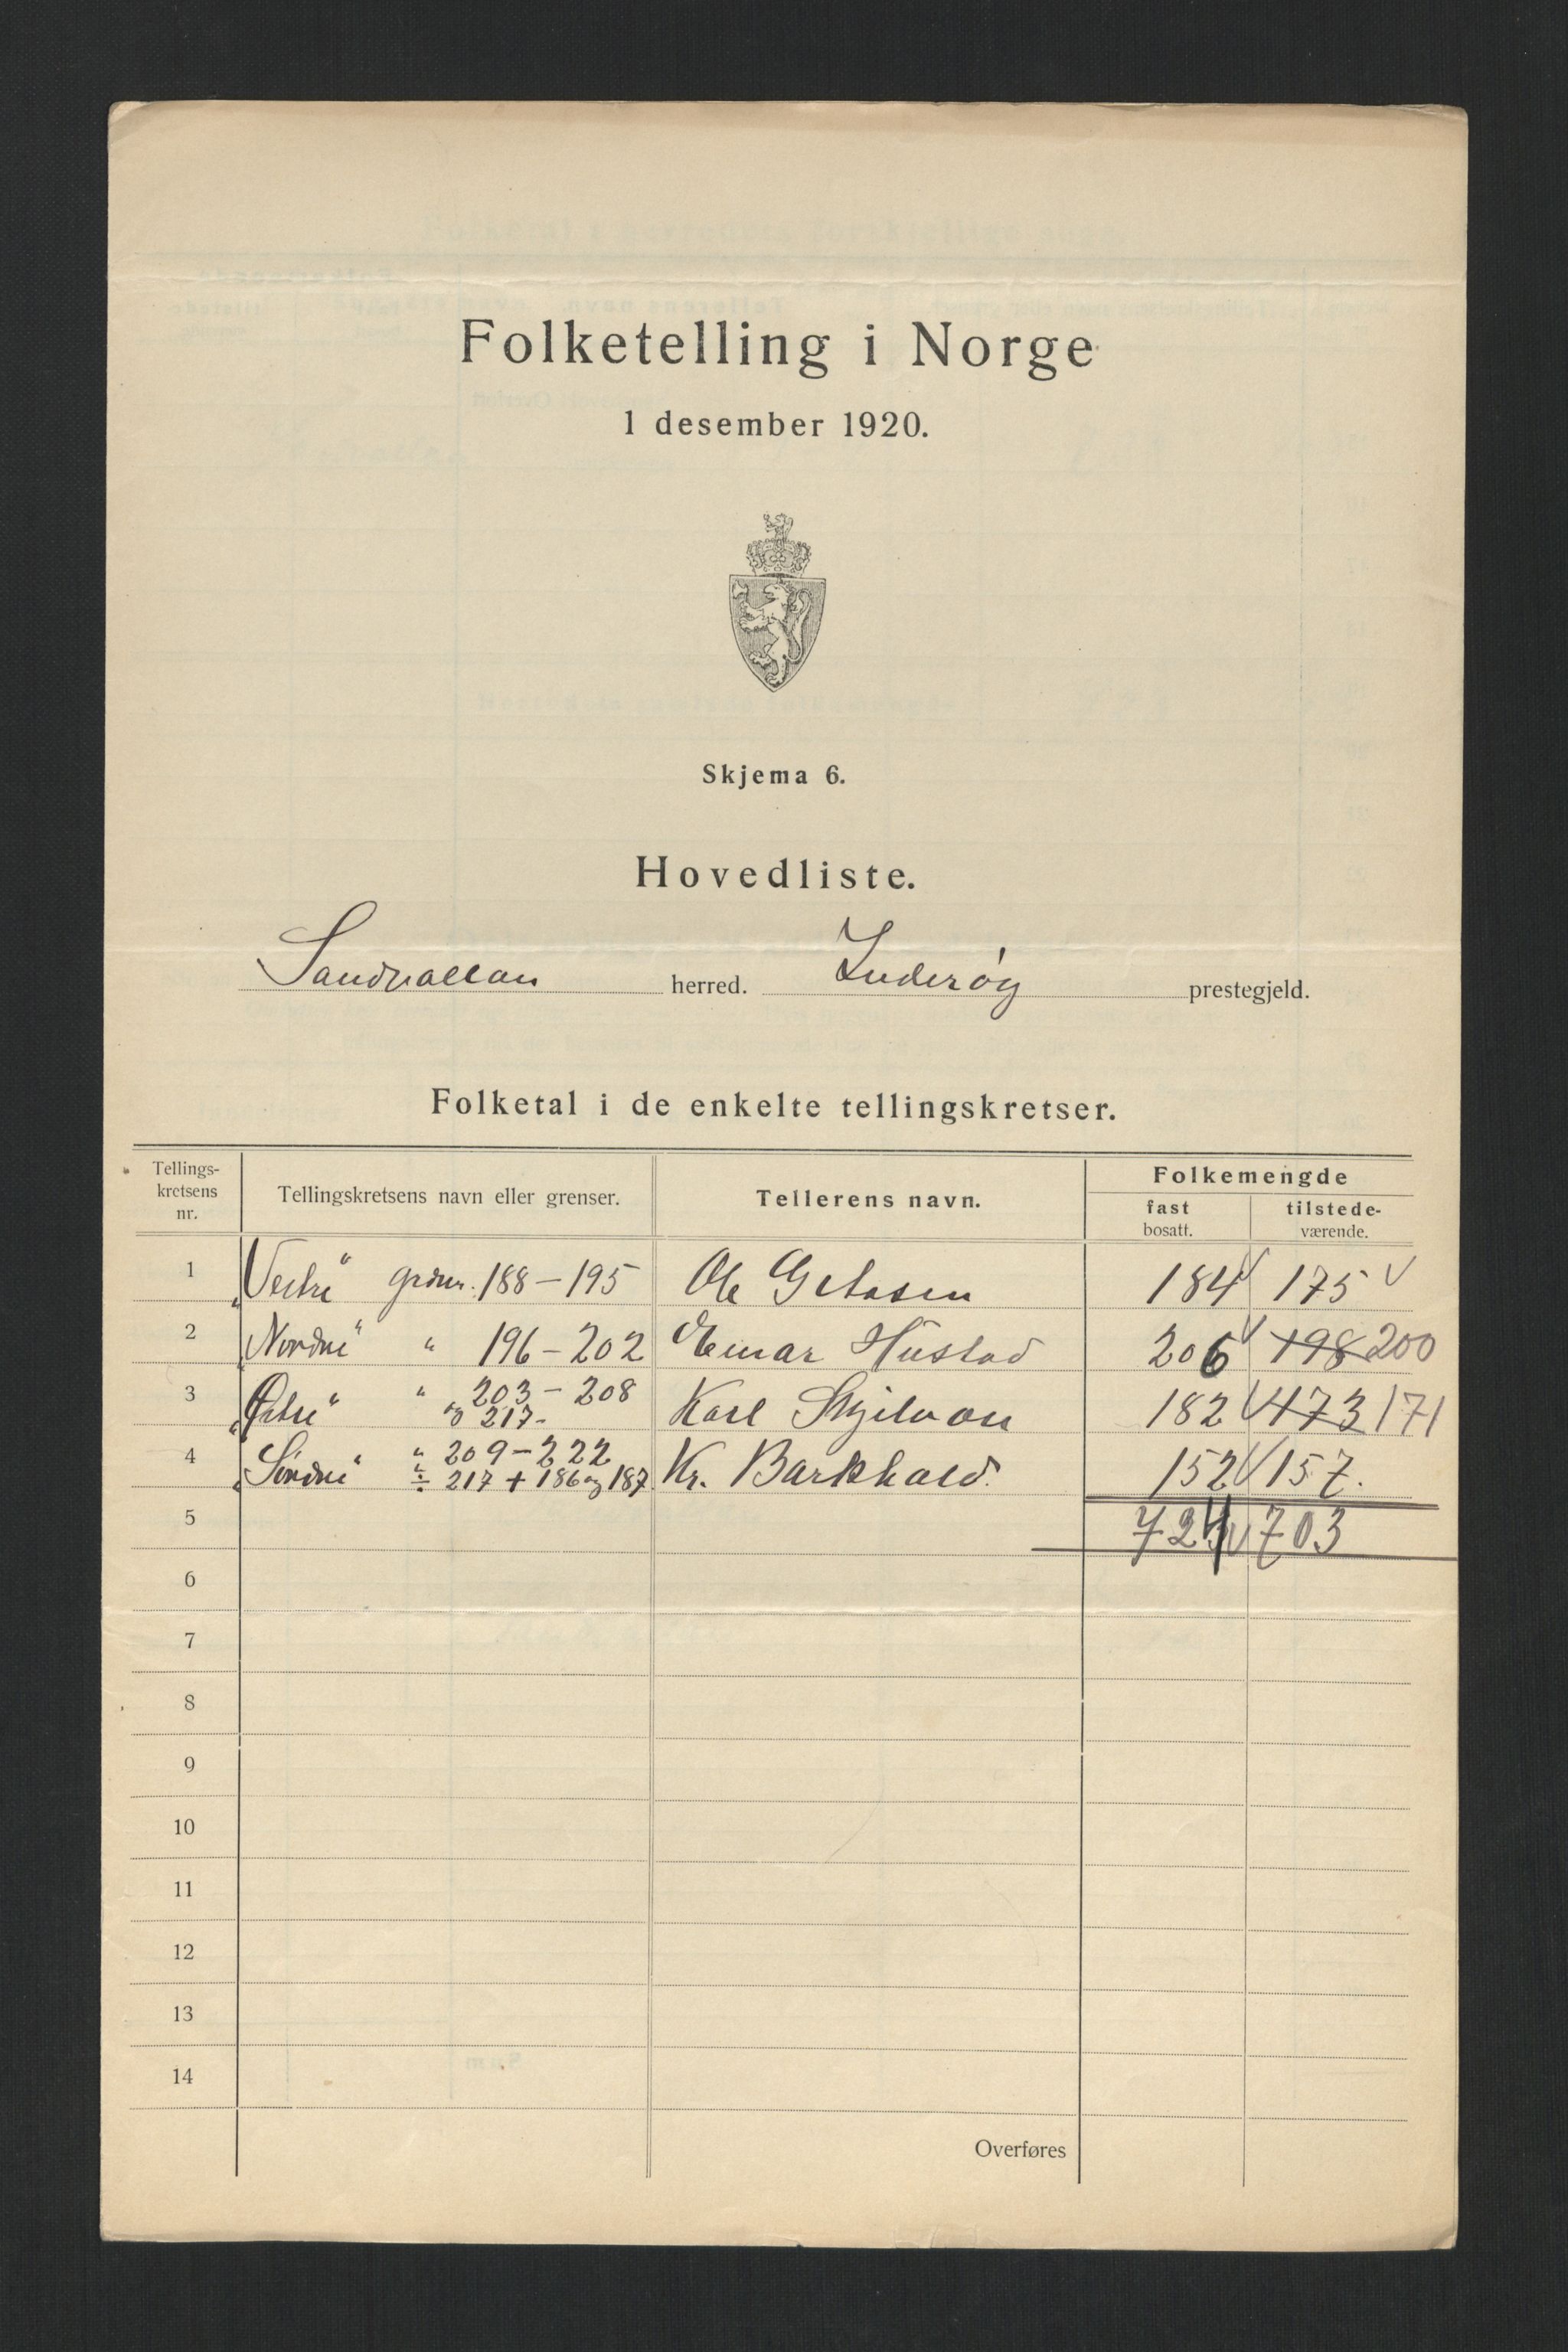 Folketelling i Norge
1 desember 1920.
Skjema 6.
Hovedliste.
Sandvollan herred. Inderøy prestegjeld.
Folketal i de enkelte tellingskretser.
Tellings-
kretsens
nr.
Tellingskretsens navn eller grenser.
Tellerens navn.
Folkemengde
fast
bosatt.
tilstede-
værende.
1 „Vestre“ grdnr. 188–195 Ole 184 175
2 „Nordre“ “ 196–202 Einar Hustad 206 198 200
3 „Østre“ “ 203–208
og 217- Karl 182 173 171
4 „Søndre“ “ 209–222
÷ 217 + 186 og 187 Kr. Barkhald. 152 157.
5 724 703
6
7
8
9
10
11
12
13
14
Overføres